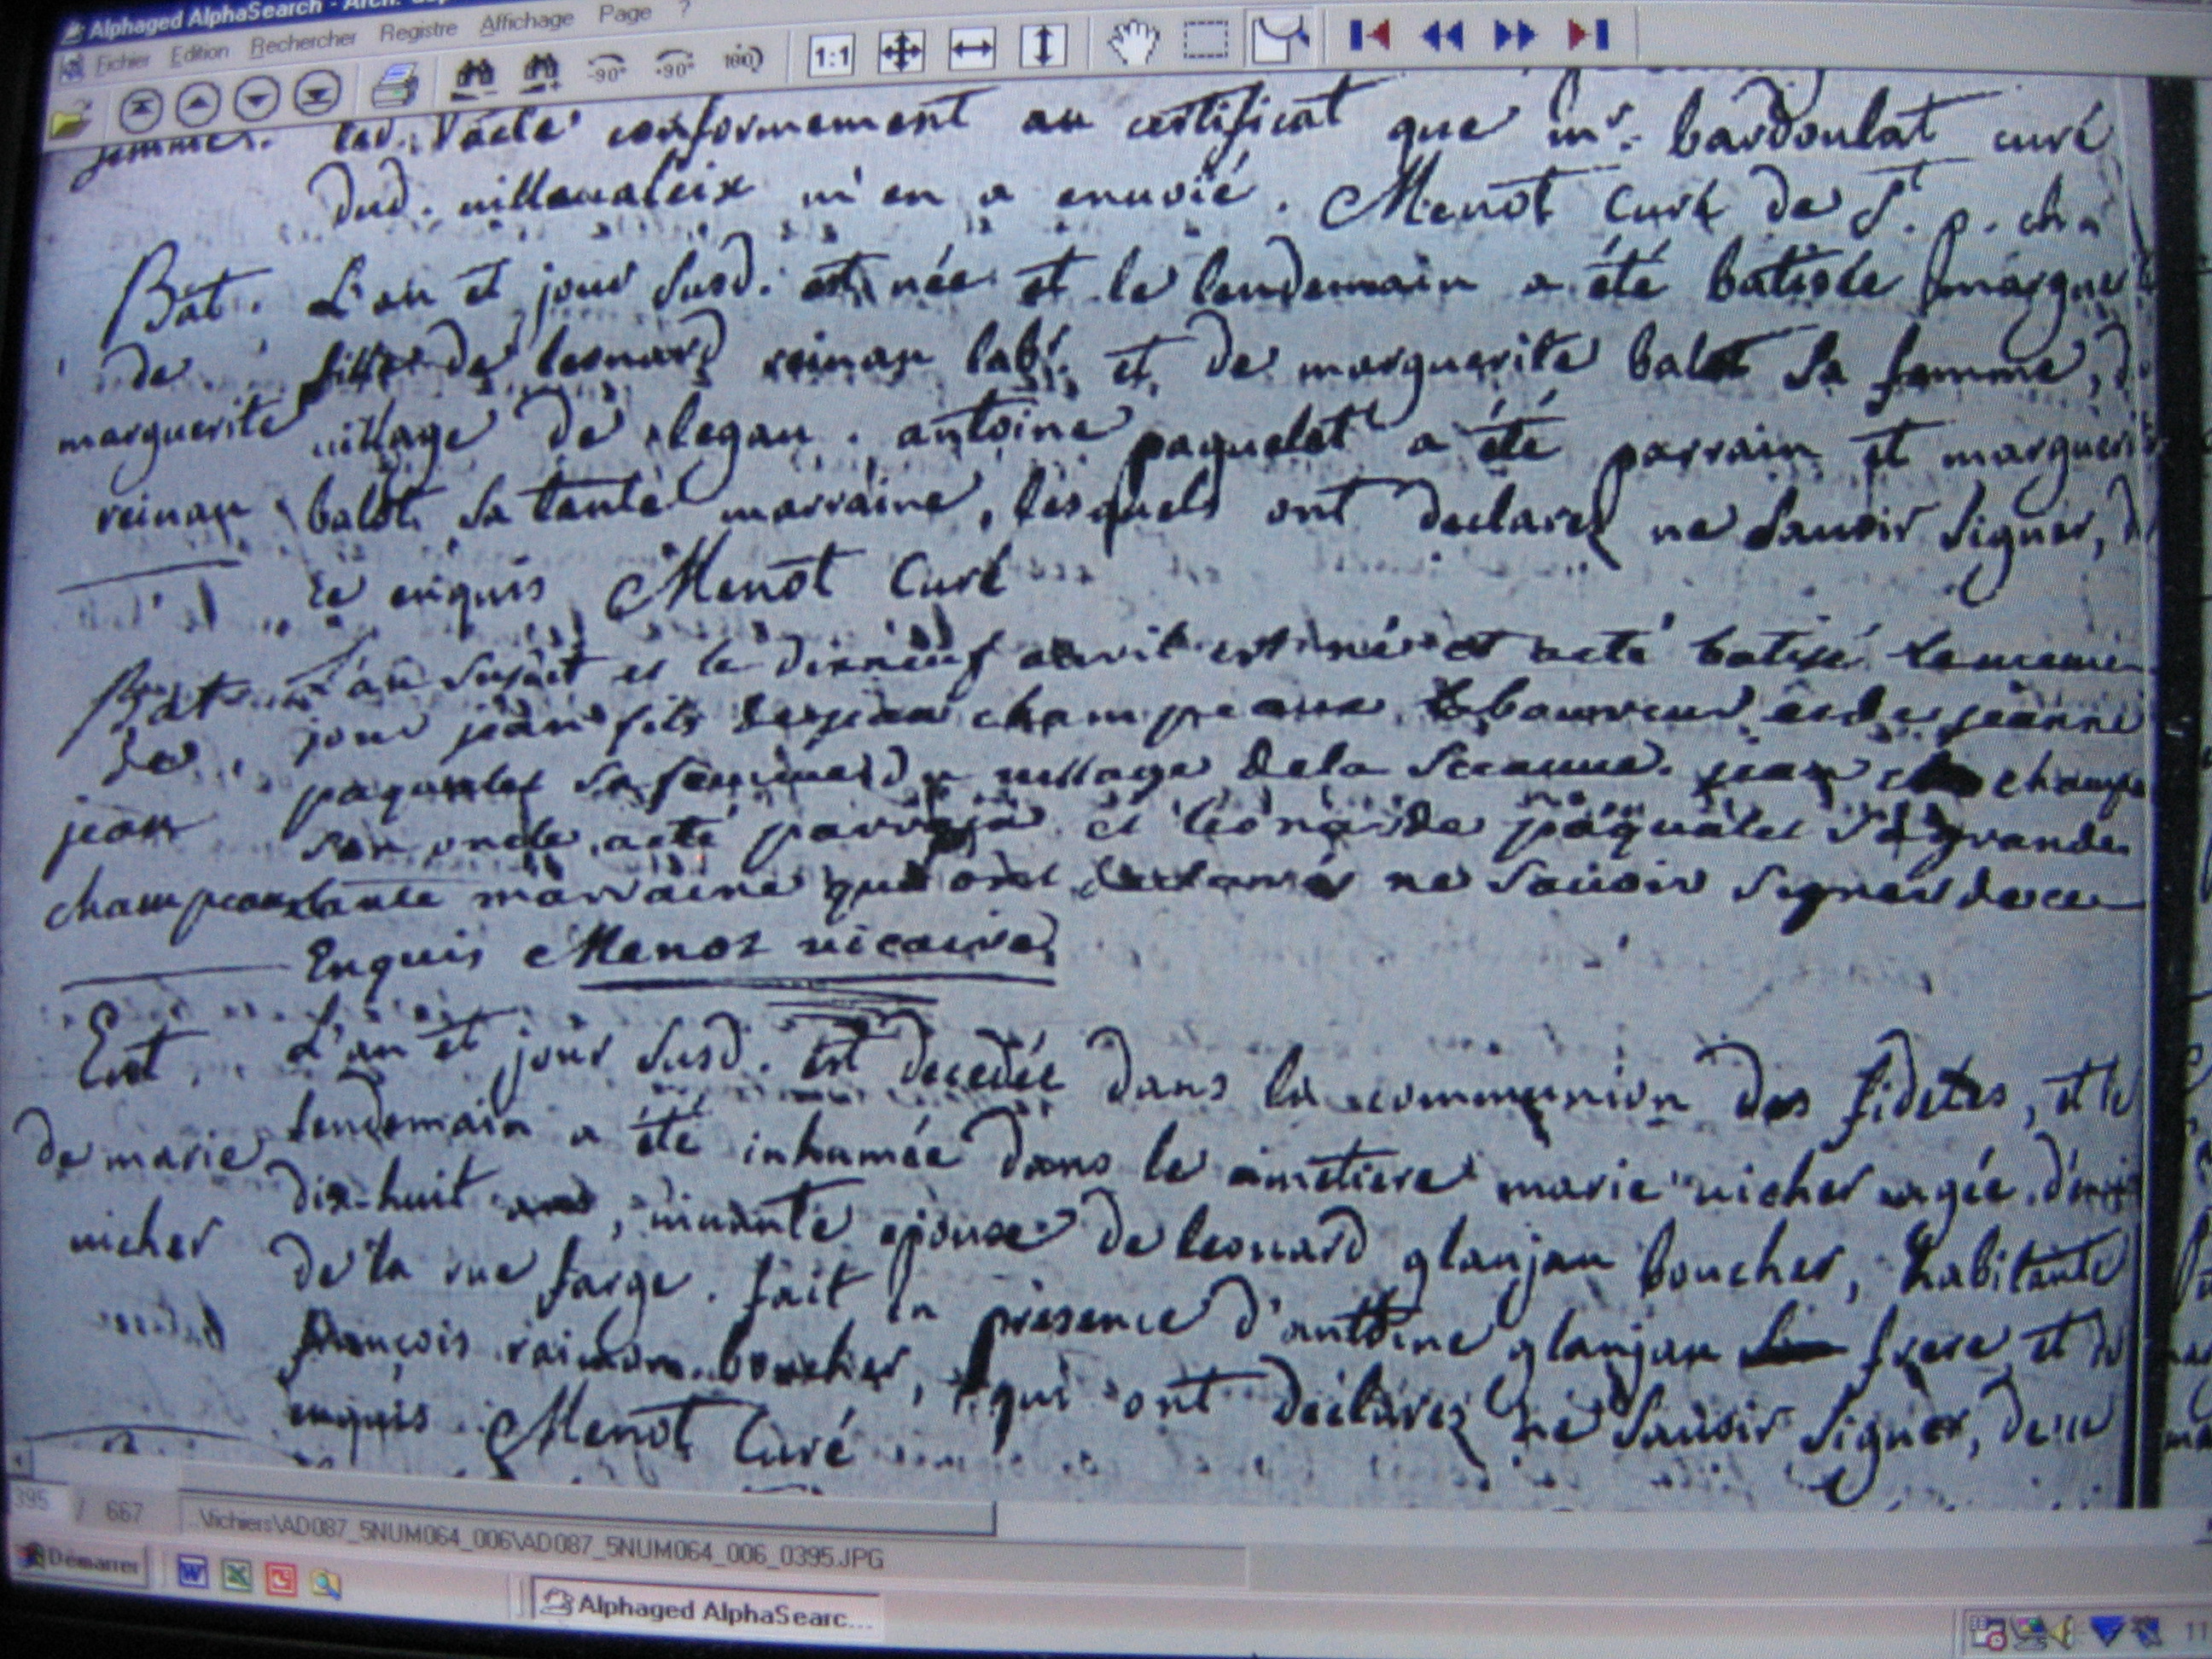 Alphaged AlphaSearch - Arch.
Fichier Edition Rechercher Registre Affichage Page ?
-90° +90° 180 1:1
femmes. conformement au certificat que mr. bardoulat curé
dud. villevaleix m'en a envoié. Menot Curé de St. p. ch
Bat. L'an et jour susd. est née et le lendemain a été batisée marguerite
de fille de leonard reinau labr. et de marguerite balot sa femme, du
marguerite village de legau. antoine paquelet a été parrain et marguerite
reinau balot sa tante marraine, lesquels ont declarez ne sauoir signer, de
ce enquis Menot Curé
Bat L'an susdit et le dixneuf avril est né et acté batisé le meme
de jour jean fils de jean champeaux laboureur et de jeanne
jean paquelet sa femme du village de la jean champ
son oncle acté parrain et leonarde paquelet sa grande
champeaux tante marraine qui ont declaré ne sauoir signer de ce
Enquis Menot uicaire
Ent. L'an et jour susd. est decedée dans la communion des fideles, et le
de marie lendemain a été inhumée dans le cimetiere marie uicher agée d'enui
uicher dix-huit ans, uiuante epouse de leonard glanjau boucher, habitante
de la rue farge. fait en presence d'antoine glanjau frere et de
françois raimon boucher, qui ont declarez ne sauoir signer, de ce
enquis Menot Curé
395 / 667
..\fichiers\AD087_5NUM064_006\AD087_5NUM064_006_0395.JPG
Démarrer Alphaged AlphaSearc...
11